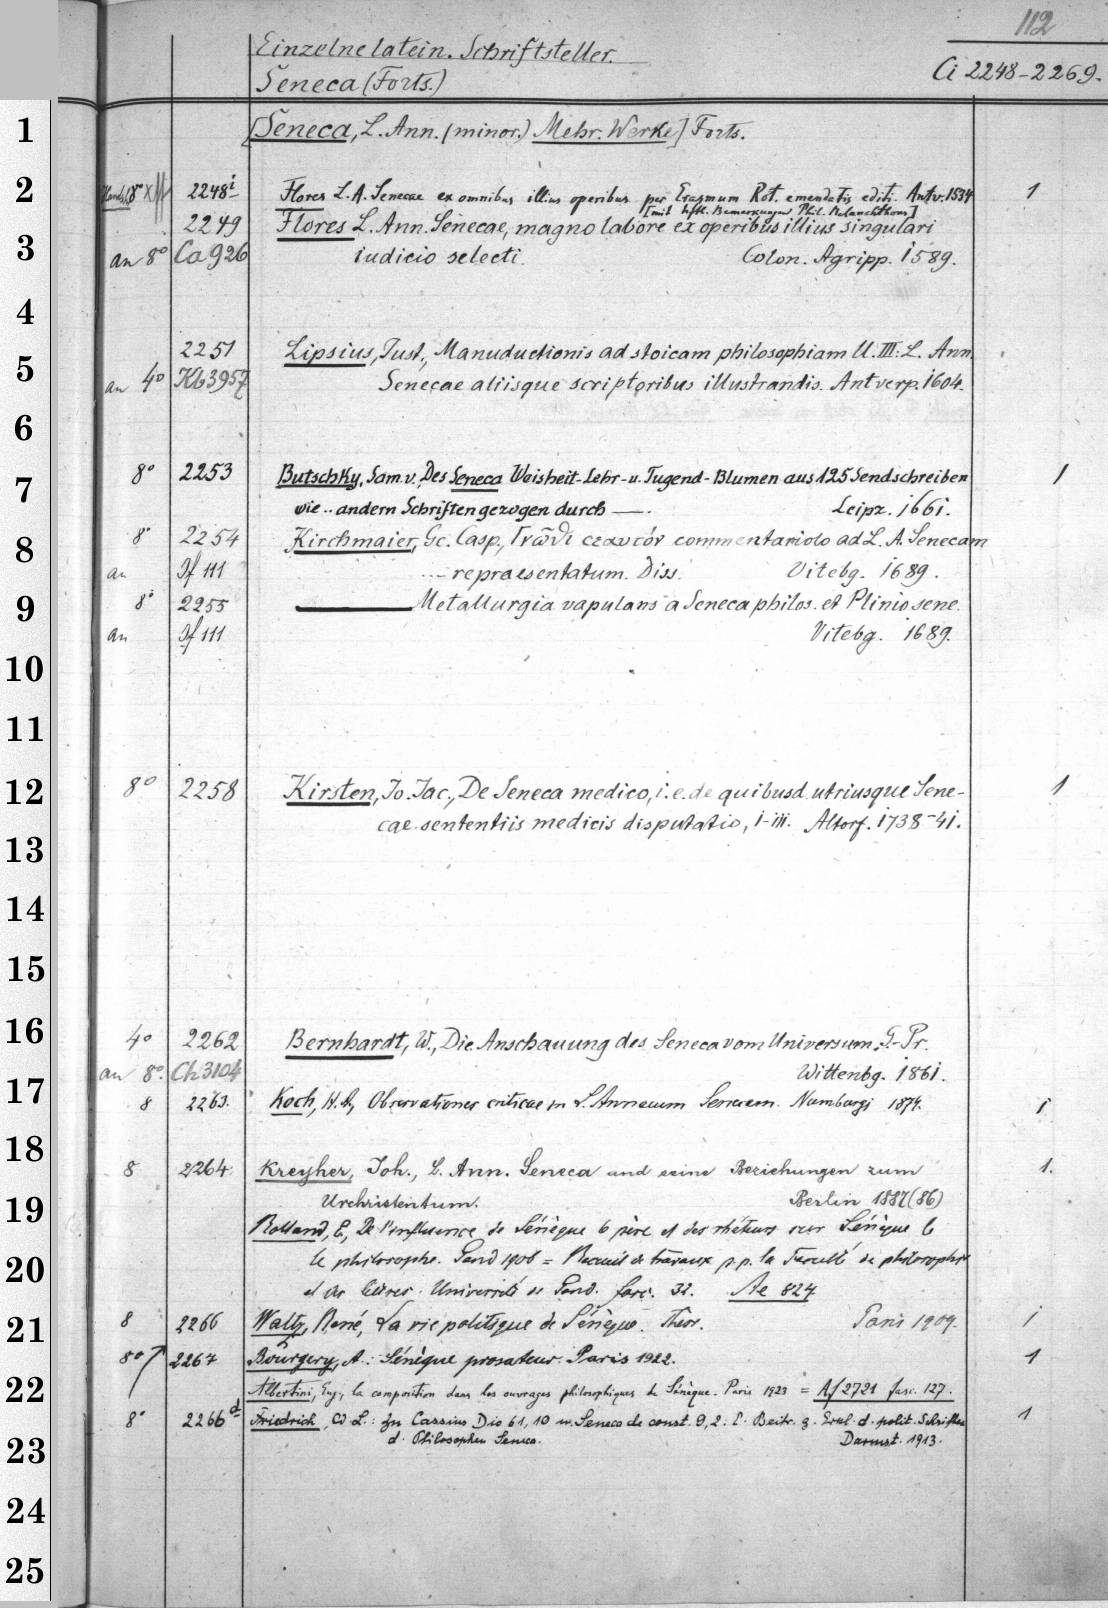 112
Einzelne latein. Schriftsteller.
Seneca (Forts.)
Ci 2248-2269.
[Seneca, L. Ann. (minor.) Mehr. Werke] Forts.
8° 2248i Flores L. A. Senecae ex omnibus illius operibus per Erasmum Rot. emendatis editi. Antv. 1534 1
[mit hftl. Bemerkungen Phil. Melanchthons]
2249 Flores L. Ann. Senecae, magno labore ex operibus illius singulari
an 8° Ca 926 iudicio selecti. Colon. Agripp. 1589.
2251 Lipsius, Just., Manuductionis ad stoicam philosophiam ll. III: L. Ann.
an 4° Kb 3957 Senecae aliisque scriptoribus illustrandis. Antverp. 1604.
8° 2253 Butschky, Sam. v., Des Seneca Weisheit-Lehr- u. Tugend-Blumen aus 125 Sendschreiben 1
wie .. andern Schriften gezogen durch —. Leipz. 1661.
8° 2254 Kirchmaier, Ge. Casp., Γνῶθι σεαυτόν commentariolo ad L. A. Senecam
an If 111 ... repraesentatum. Diss. Vitebg. 1689.
8° 2255 — Metallurgia vapulans a Seneca philos. et Plinio sene.
an If 111 Vitebg. 1689.
8° 2258 Kirsten, Jo. Jac., De Seneca medico, i. e. de quibusd. utriusque Sene- 1
cae sententiis medicis disputatio, I-III. Altorf. 1738-41.
4° 2262 Bernhardt, W., Die Anschauung des Seneca vom Universum. G.-Pr.
an 8°. Ch 3104 Wittenbg. 1861.
8 2263. Koch, H. A., Observationes criticae in L. Annaeum Senecam. Numburgi 1874. 1
8 2264 Kreyher, Joh., L. Ann. Seneca und seine Beziehungen zum 1.
Urchristentum. Berlin 1887 (86)
Rolland, E., De l'influence de Sénèque le père et des rhéteurs sur Sénèque le
le philosophe. Gand 1906 = Recueil de travaux p. p. la Faculté de philosophie
et de lettres. Université de Gand. fasc. 32. Ae 824
8 2266 Waltz, René, La vie politique de Sénèque. Thèse. Paris 1909. 1
8° 2267 Bourgery, A.: Sénèque prosateur. Paris 1922. 1
Albertini, Eug., la composition dans les ouvrages philosophiques de Sénèque. Paris 1923 = Af 2721 fasc. 127.
8° 2266d Friedrich, W. L.: Zu Cassius Dio 61, 10 u. Seneca de const. 9, 2: E. Beitr. z. Erkl. d. polit. Schriften 1
d. Philosophen Seneca. Darmst. 1913.
1
2
3
4
5
6
7
8
9
10
11
12
13
14
15
16
17
18
19
20
21
22
23
24
25